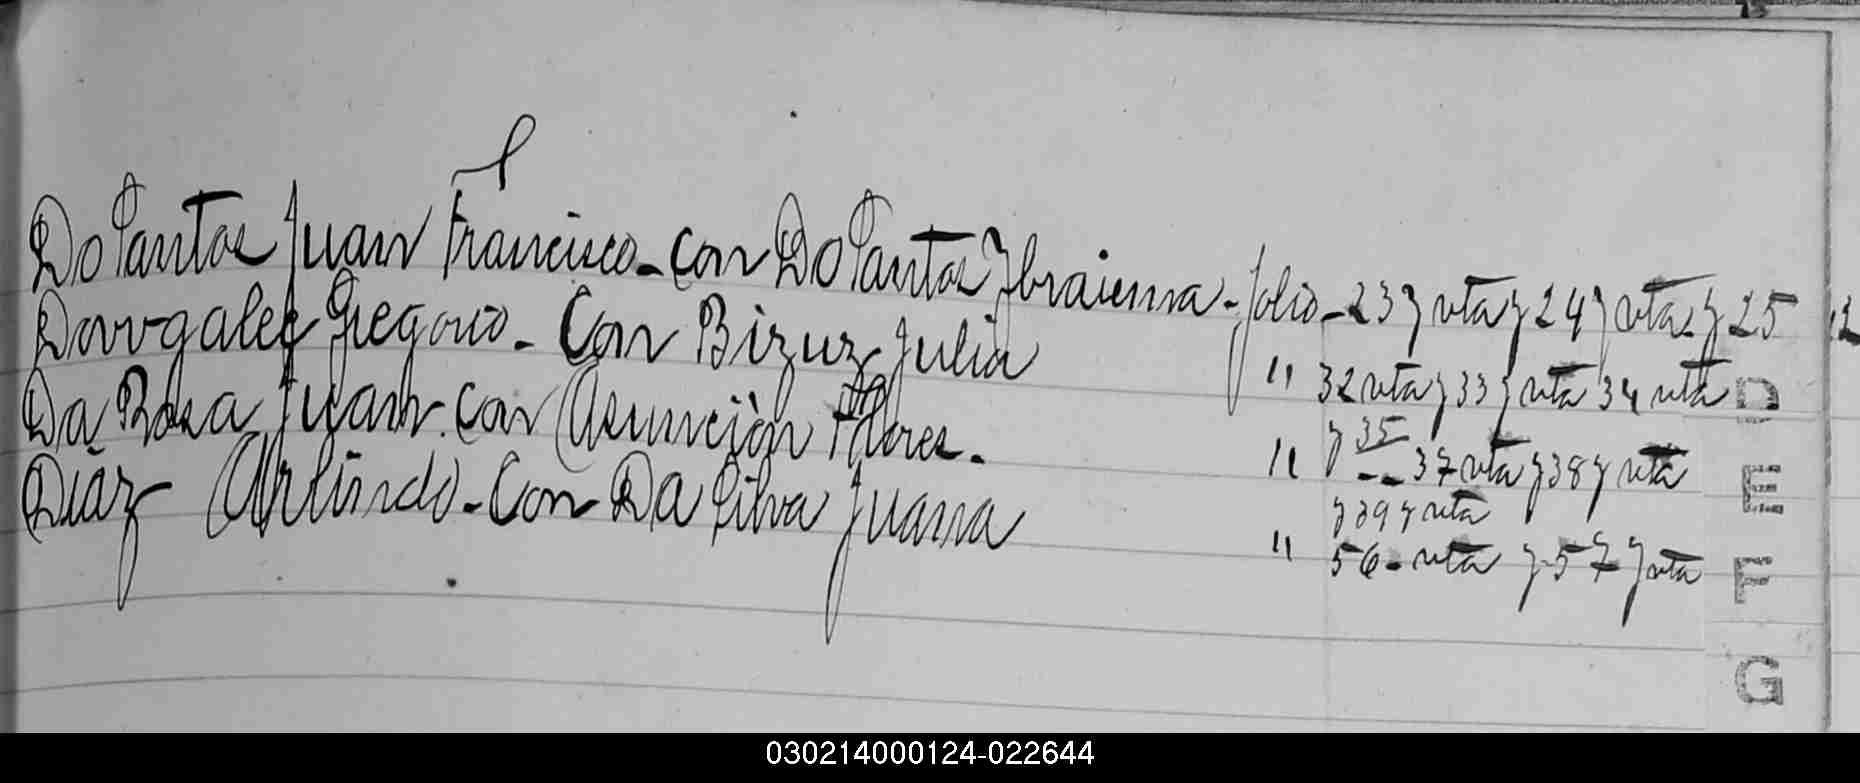 Do Santos Juan Francisco - con Do Santos Ybraienna - folio - 23 y vta y 24 y vta y 25
Dorrgalez Gregorio - Con Bizuz Julia " 32 vta y 33 y vta 34 vta
y 35
Da Rosa Juan. con Asunciòn Flores. " -- 37 vta y 38 y vta
y 39 y vta
Diaz Arlindo - Con Da Silva Juana " 56 - vta y 57 y vta
D
E
F
G
030214000124-022644